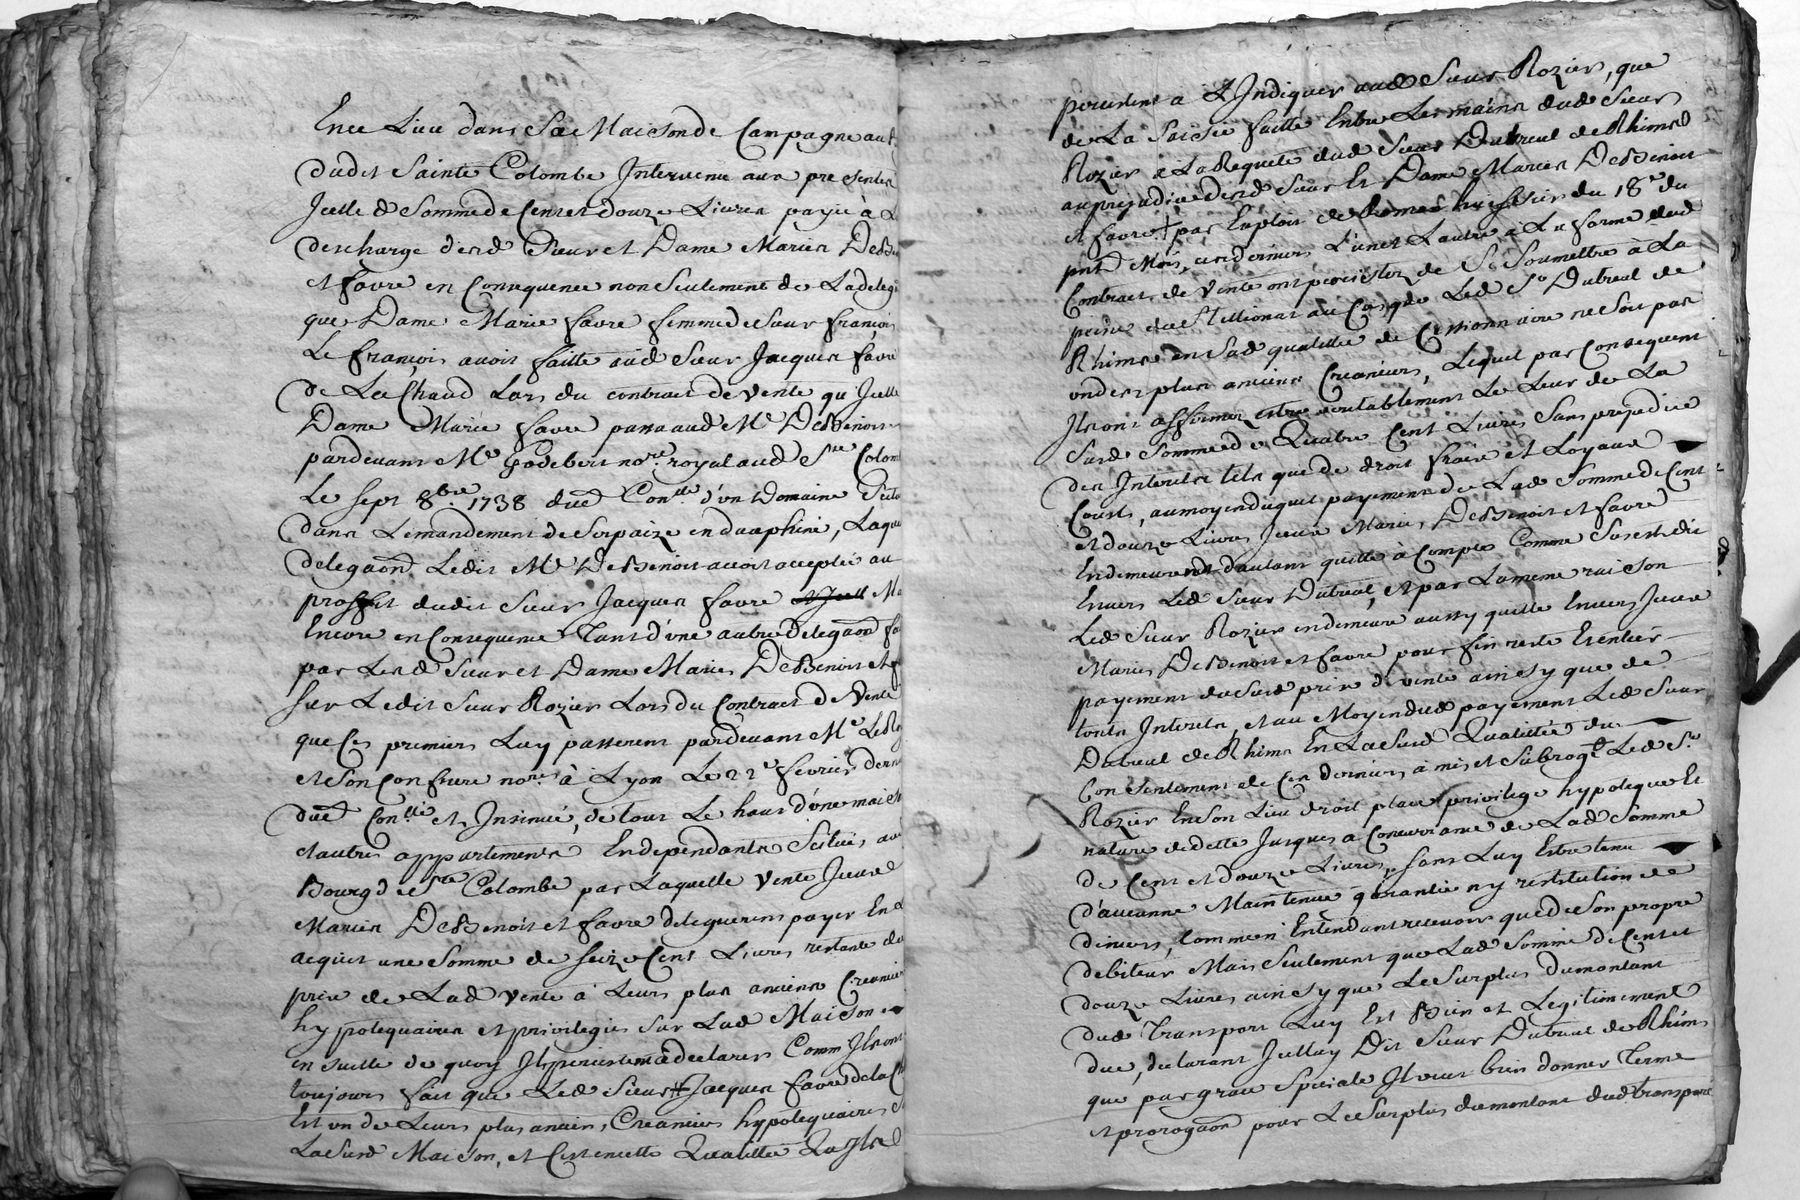 En ce Lieu dans Sa Maison de Campagne au
dudit Sainte Colombe Intervenu aux presentes
Jcelle d Somme de Cent et douze Livres payée à
descharge desd Sieur et Dame Mariés DeBe
et favre en Consequence non Seulement de La deleg
que Dame Marie favre femme de Sieur françois
Le françois avoit faitte aud Sieur Jacques favre
de La Chaud Lors du contract de vente qu'Jcelle
Dame Marie favre passa aud Mr DeBenoist
pardevant Me Godebert nore royal aud Ste Colom
Le sept 8bre 1738 dued Conllé d'un Domaine Scitu
dans Le mandement de Serpaize en dauphiné, Laque
delegaon Ledit Mr DeBenoit avoit acceptée au
proffit dudit Sieur Jacques favre Ma
Encore en Consequence Tant d'une autre Delegaon fa
par Lesd Sieur et Dame Mariés DeBenoit et f
Sur Ledit Sieur Rozier Lors du Contract de Vente
que Ces premiers Luy passerent pardevant Me LeRoy
et Son Confrere nores à Lyon Le 22e fevrier dern
dued Conllé et Insinué, de tout Le haut d'une maison
et autres appartements Endependants Scitués au
Bourg de Ste Colombe par Laquelle vente Jceux
Mariés DeBenoit et favre deleguerent payer En
acquit une Somme de Seize Cent Livres restante du
prix de Lad vente à Leurs plus anciens Creanciers
hypotequaires et privilegiés Sur Lad Maison
en Suitte de quoy Ils persistent à declarer Comm Ils ont
toujours fait que Led Sieur Jacques favre de la Ch
Est un de Leurs plus anciens Creanciers hypotequaires
La Susd Maison, et C'est en cette Qualitté
persistent a L'Indiquer aud Sieur Rozier, que
de La Saisie faitte Entre Les mains dud Sieur
Rozier a La Requete dud Sieur Dubreul de Rhims
au prejudice desd Sieur Et Dame Mariés DeBenoit
et favre par Exploit de huissier du 18e du
pnt Mois, ces derniers L'un et L'autre a La forme dud
Contract de Vente ont persisté de Se Soumettre à La
peine du Stellionat au Cas que Led Sr Dubreul de
Rhims en Sad qualittée de Cessionnaire ne Soit pas
un des plus anciens Creanciers, Lequel par Consequent
Ils ont affirmer estre veritablement Le Leur de La
Susd Somme de Quatre Cent Livres Sans prejudice
des Interests tels que de droit fraix et Loyaux
Cousts, au moyen duquel payement de Lad Somme de Cent
et douze Livres Jceux Mariés DeBenoit et favre
En demeurent d'autant quitte à Compte Comme Sus est dit
Envers Led Sieur Dubreul, et par La meme raison
Led Sieur Rozier en demeure aussy quitte Envers Jceux
Mariés DeBenoit et favre pour fin reste Et entier
payement du Susd prix de vente ainsy que de
touts Interests, et au Moyen dud payement Led Sieur
Dubreul de Rhims En La Susd Qualittée du
Consentement de Ces derniers a mis et Subrogé Led Sr
Rozier En Son Lieu droit place privilege hypoteque Et
nature de dette Jusques a Concurrance de Lad Somme
de Cent et douze Livres, Sans Luy Estre tenu
d'aucunne Maintenue garantie ny restitution de
deniers, Comme n'Entendant recevoir que de Son propre
debiteur Mais Seulement que Lad Somme de Cent et
douze Livres ainsy que Le Surplus du montant
dud Transport Luy Est Bien et Legitimement
due, declarant Jcelluy Dit Sieur Dubreul de Rhims
que par grace Speciale Il veut bien donner Terme
et prorogaon pour Le Surplus du montant dud transport